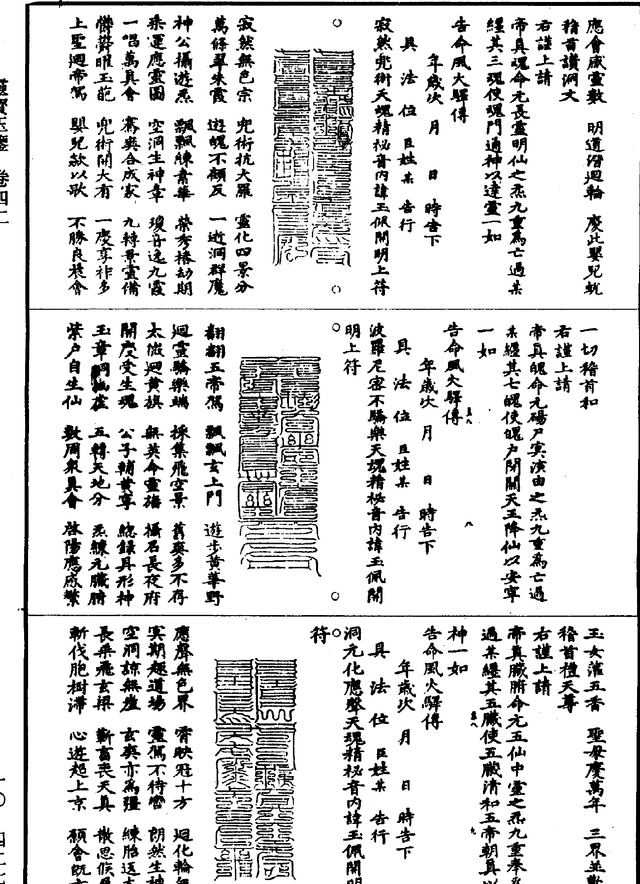 應會感靈數　明道潛迴輪　慶此嬰兒蛻
稽首讚洞文
右謹上請
帝真魂命元長靈明仙之炁九重為亡過某
經其三魂使魂門通神以達靈一如
告命風火驛傳
年歲次　月　日　時告下
具　法　位　臣姓某　告行
寂然兜術天魂精祕音內諱玉佩開明上符
寂然無色宗　兜術抗大羅　靈化四景分
萬條翠朱霞　遊魄不顧反　一逝洞群魔
神公攝遊炁　飄飄練素華　榮秀椿劫期
乘運應靈圖　空洞生神章　瓊音逸九霞
一唱萬真會　騫爽合成家　九轉景靈備
鬱鬱　玉葩　兜術開大有　一慶享祚多
上聖迴帝駕　嬰兒欻以歌　不勝良晨會
一切稽首和
右謹上請
帝真魄命元碭尸冥演由之炁九重為亡過
某經其七魄使魄戶閉關天王降仙以安寧
一如
告命風火驛傳
年歲次　月　日　時告下
具　法　位　臣姓某　告行
波羅尼密不驕樂天魂精祕音內諱玉佩開
明上符
翻翻五帝駕　飄飄玄上門　遊步黃華野
迴靈驕樂端　採集飛空景　舊爽多不存
太微迴黃旗　無英命靈旛　攝召長夜府
開度受生魂　公子輔黃寧　總錄具形神
玉章　虛　五轉天地分　炁練元臟腑
紫戶自生仙　數周衆真會　啓陽應感繁
玉女灌五香　聖母慶萬年　三界並歡
稽首禮天尊
右謹上請
帝真臟腑命元五仙中靈之炁九重奉
過某經其五臟使五臟清和五帝朝真以
神一如
告命風火驛傳
年歲次　月　日　時告下
具　法　位　臣姓某　告行
洞元化應聲天魂精祕音內諱玉佩開明
符
應聲無色界　霄映冠十方　迴化輪無
冥期趣道場　靈駕不待轡　朗然生神
空洞諒無崖　玄爽亦為彊　練胎返本
長乘飛玄梁　喪天真　散思候
斬伐胞樹滯　心遊超上京　願會既
靈寶玉鑒　卷四二
一〇　四二七